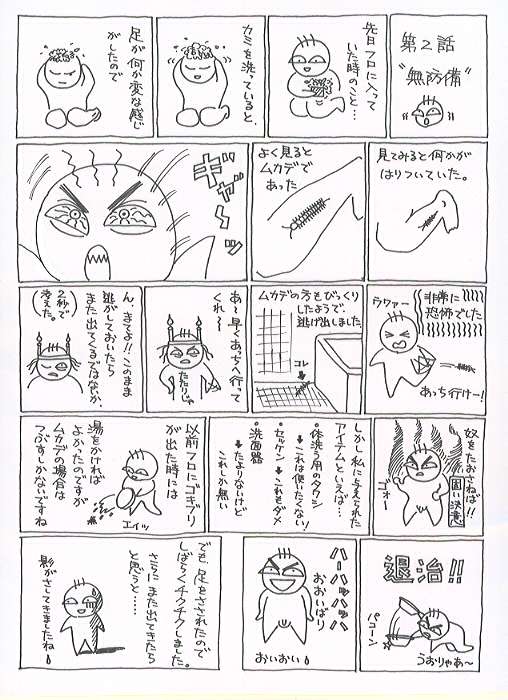 第2話
“無防備”
先日フロに入って
いた時のこと…
カミを洗っていると、
足が何か変な感じ
がしたので
見てみると何かが
はりついていた。
よく見ると
ムカデで
あった
ギャーッ
非常に
恐怖でした
ウワァー
あっち行けー!
ムカデの方もびっくり
したようで、
逃げ出しました。
コレ
あ〜早くあっちへ行って
くれ〜
たたりじゃ
ん、まてよ!!このまま
逃がしておいたら
また出てくるではないか、
(2秒で
冷えた。)
奴をたおさねば!!
固い決意
ゴォー
しかし私に与えられた
アイテムといえば…
・体洗う用のタワシ
↓これは使いたくない!
・セッケン→これもダメ
・洗面器
↓たよりないけど
これしか無い
以前フロにゴキブリ
が出た時には
エイッ
湯をかければ
よかったのですが
ムカデの場合は
つぶすしかないですね
退治!!
パコーン
うおりゃあ〜
ハーハッハッハ
おおいばり
おいおい
でも、足をさされたので
しばらくチクチクしました。
さらにまた出てきたら
と思うと……
影がさしてきましたね